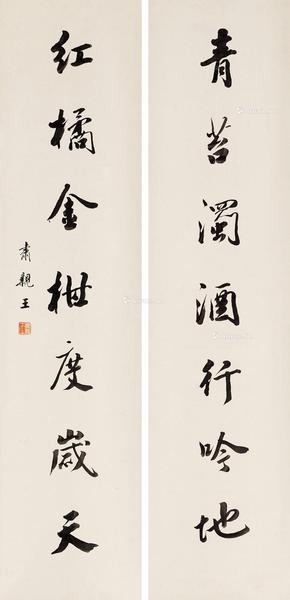 青苔濁酒行吟地
紅橘金柑度歲天
肅親王